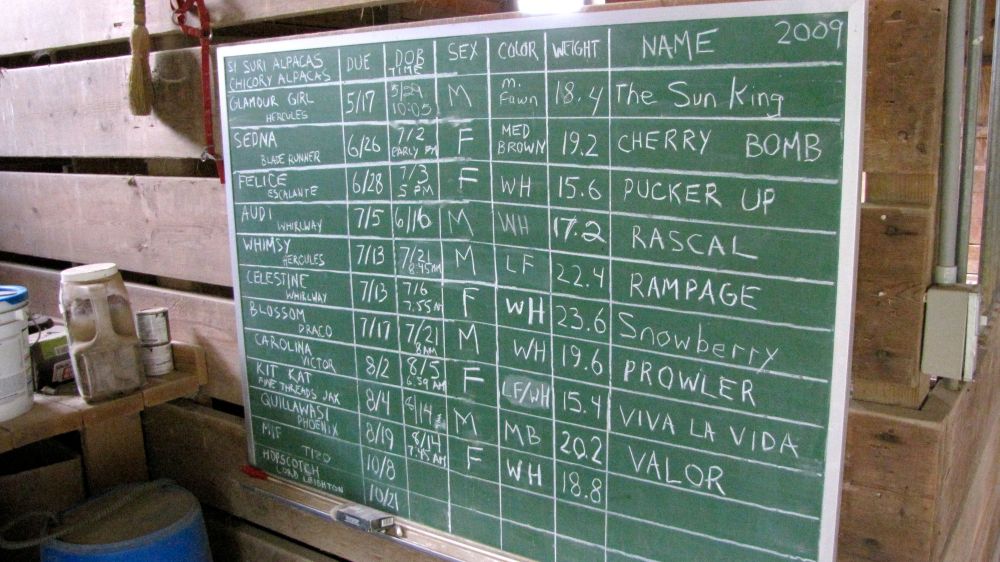 SI SURI ALPACAS DUE DOB SEX COLOR WEIGHT NAME 2009
CHICORY ALPACAS TIME
GLAMOUR GIRL 5/17 5/29 M m. 18.4 The Sun King
HERCULES 10:05 Fawn
SEDNA 6/26 7/2 F MED 19.2 CHERRY BOMB
BLADE RUNNER EARLY PM BROWN
FELICE 6/28 7/3 F WH 15.6 PUCKER UP
ESCALANTE 5 PM
AUDI 7/5 6/16 M WH 17.2 RASCAL
WHIRLWAY
WHIMSY 7/13 7/21 M LF 22.4 RAMPAGE
HERCULES 8:45AM
CELESTINE 7/13 7/6 F WH 23.6 Snowberry
WHIRLWAY 7:55
BLOSSOM 7/17 7/21 M WH 19.6 PROWLER
DRACO 8AM
CAROLINA 8/2 8/5 F LF/WH 15.4 VIVA LA VIDA
VICTOR 6:59 AM
KIT KAT 8/4 8/14 M MB 20.2 VALOR
FINE THREADS JAX
QUILLAWASI 8/19 8/14 F WH 18.8
PHOENIX 7:45 AM
MIF TIZO 10/8
HOPSCOTCH 10/21
LORD LEIGHTON